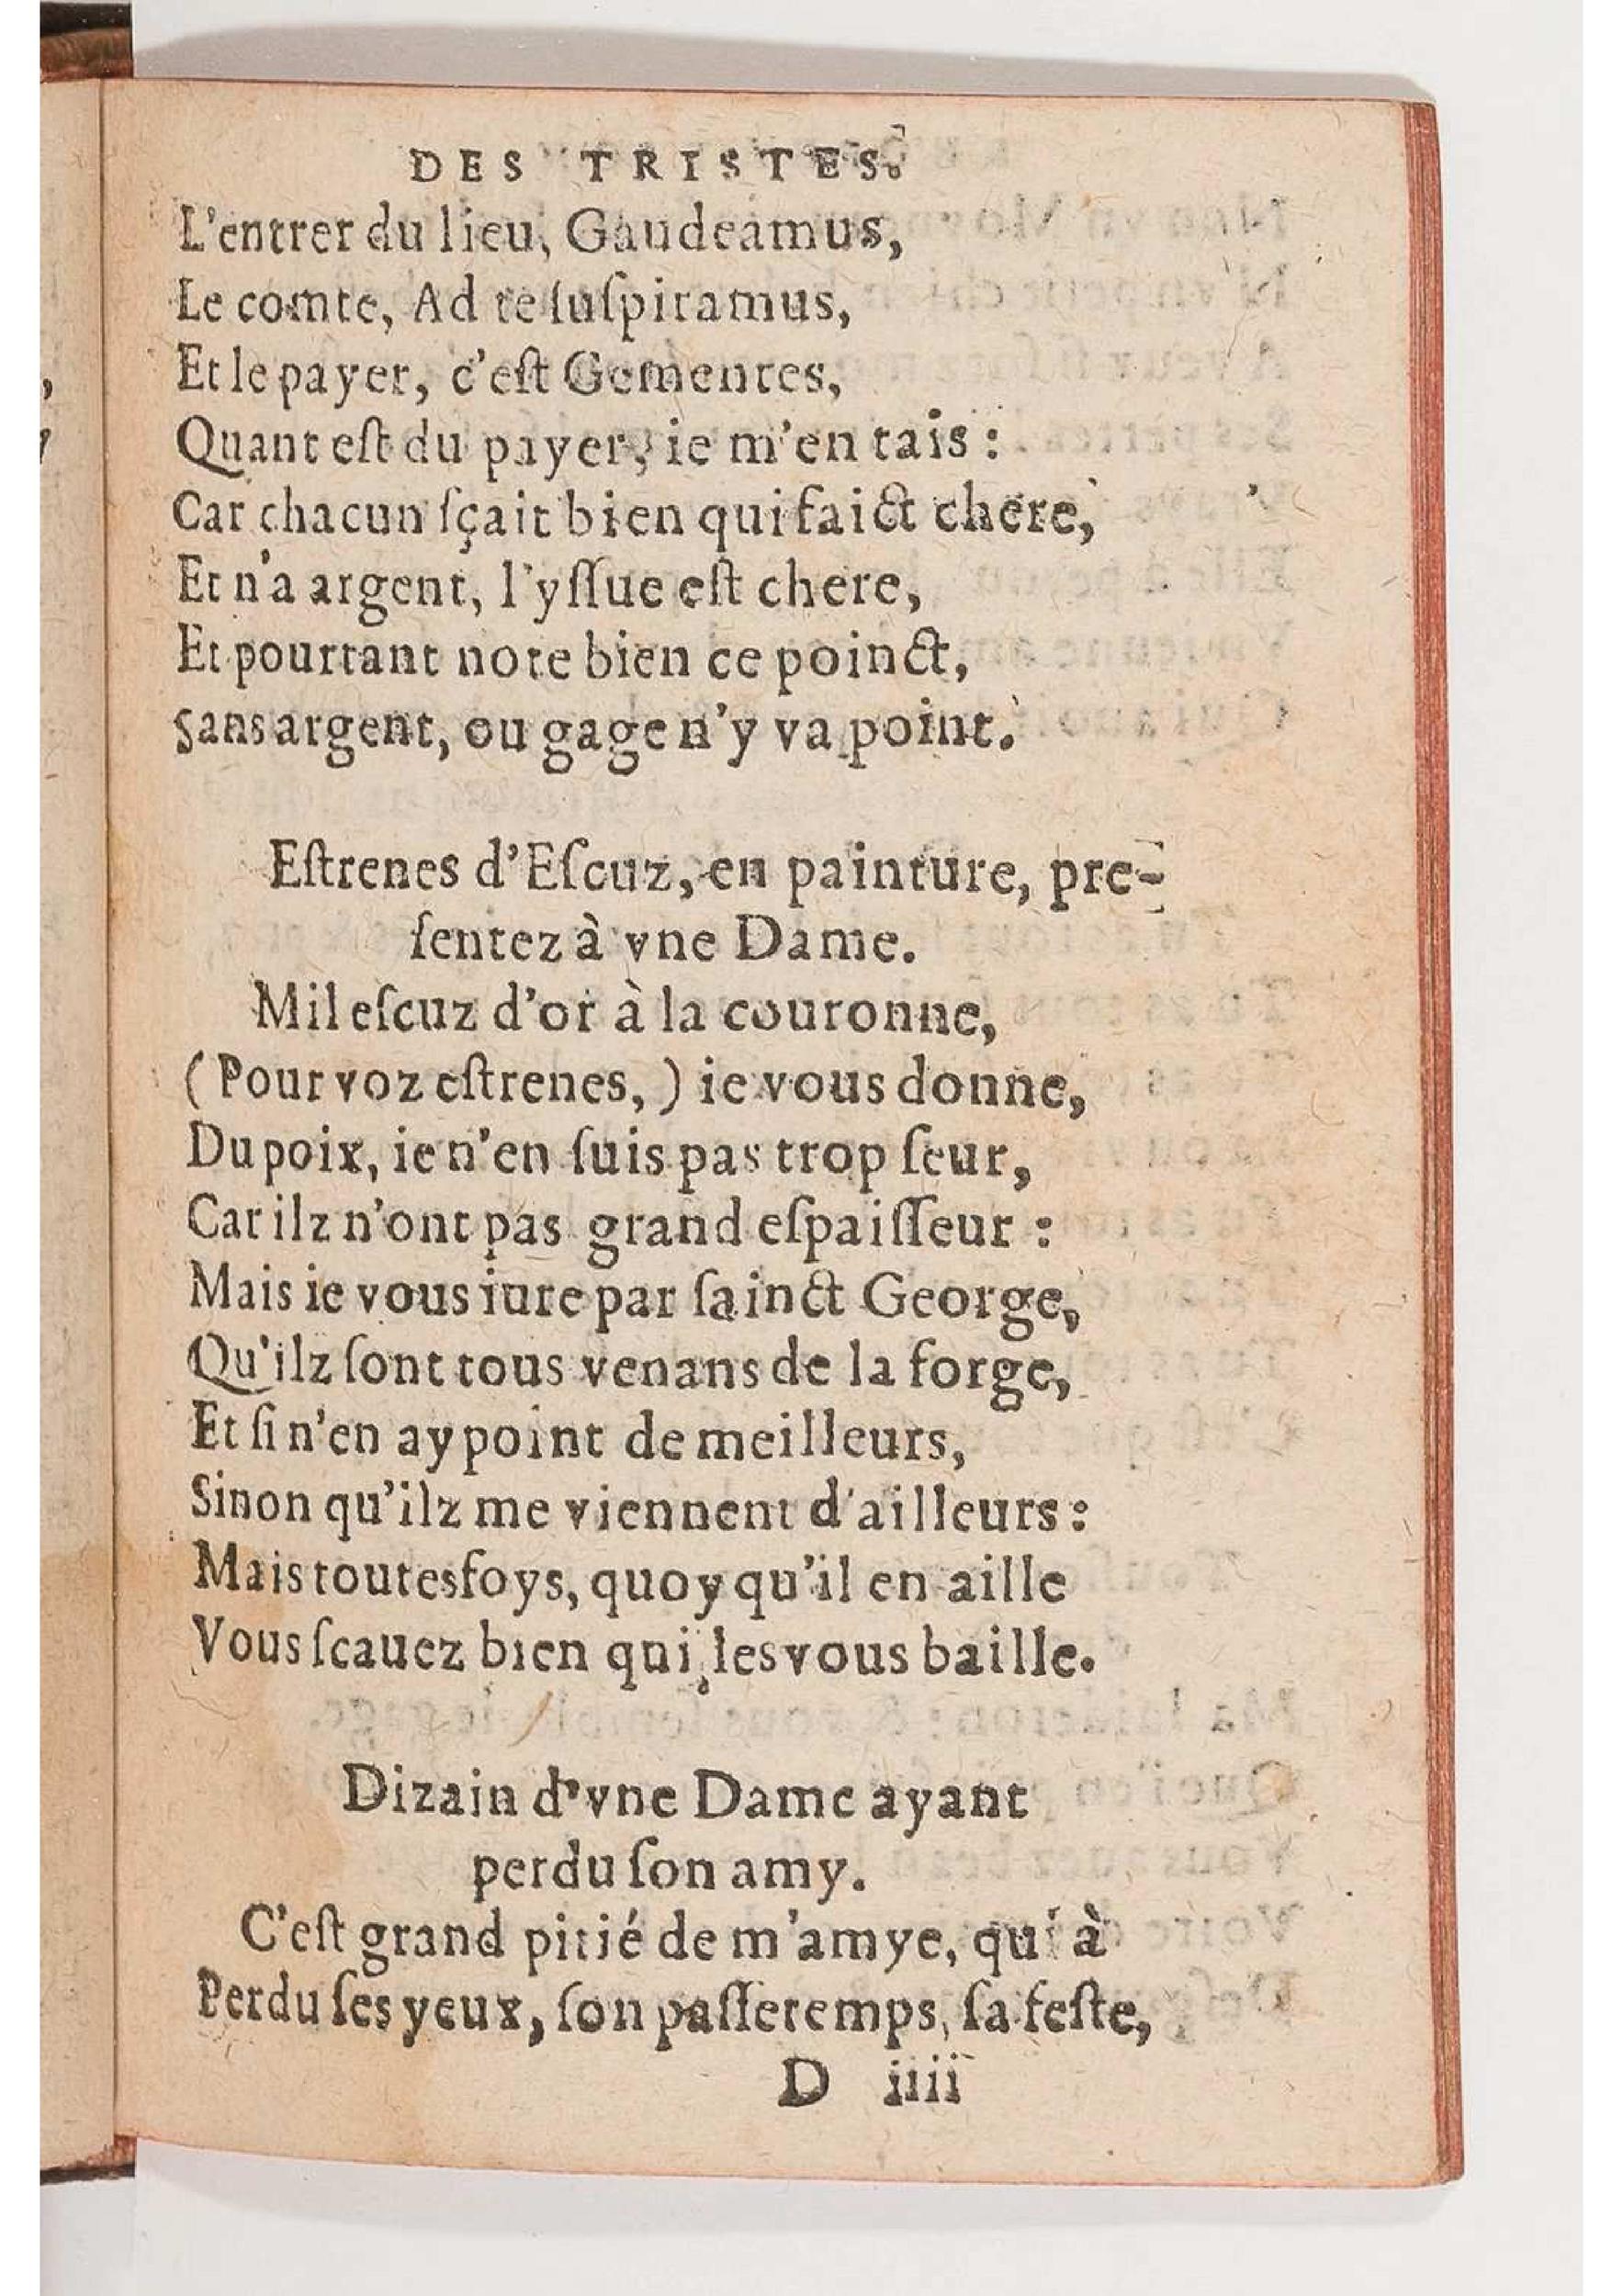 DES TRISTES.
L'entrer du lieu, Gaudeamus,
Le comte, Ad te ſuſpiramus,
Et le payer, c'eſt Gementes,
Quant eſt du payer, ie m'en tais :
Car chacun ſçait bien qui faict chere,
Et n'a argent, l'yſſue eſt chere,
Et pourtant note bien ce poinct,
Sans argent, ou gage n'y va point.
Eſtrenes d'Eſcuz, en painture, pre-
ſentez à vne Dame.
Mil eſcuz d'or à la couronne,
(Pour voz eſtrenes,) ie vous donne,
Du poix, ie n'en ſuis pas trop ſeur,
Car ilz n'ont pas grand eſpaiſſeur :
Mais ie vous iure par ſainct George,
Qu'ilz ſont tous venans de la forge,
Et ſi n'en ay point de meilleurs,
Sinon qu'ilz me viennent d'ailleurs :
Mais toutesfoys, quoy qu'il en aille
Vous ſcauez bien qui les vous baille.
Dizain d'vne Dame ayant
perdu ſon amy.
C'eſt grand pitié de m'amye, qui à
Perdu ſes yeux, ſon paſſetemps, ſa feſte,
D iiii